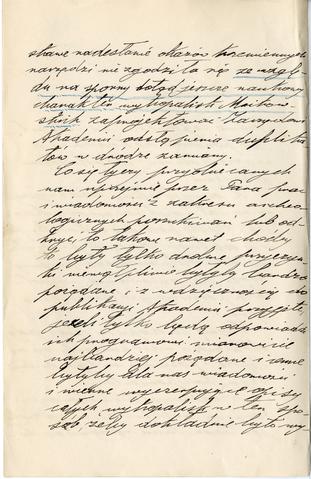 skawe nadesłanie okazów krzemiennych
narzędzi nie zgodziła się ze wzglę-
du na sporny dotąd jeszcze naukowy
charakter wykopalisk Mnikow-
skich zaproponować Zarządowi
Akademii odstąpienia dupli ka-
tów w drodze zamiany.
Co się tyczy przyobiecanych
nam uprzejmie przez Pana prac
i wiadomości z zakresu archeo-
logicznych poszukiwań lub od-
kryć, to takowe nawet choćby
to były tylko drobne przyczyn-
ki niewątpliwie byłyby bardzo
pożądane i z wdzięcznością do
publikacyi Akademii przyjęte,
jeżeli tylko będą odpowiadać
ich programowi mianowicie
najbardziej pożądane i cenne
byłyby dla nas wiadomości
i mienne wyczerpujące opisy
całych wykopalisk w ten spo-
sób żeby dokładnie było wy-